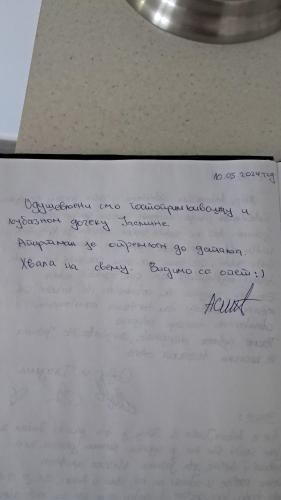 10.05 2024 год
Одушевљени смо гостопримљивошћу и
љубазном дочеку Јасмине.
Апартман је опремљен до детаља.
Хвала на свему. Видимо се опет :)